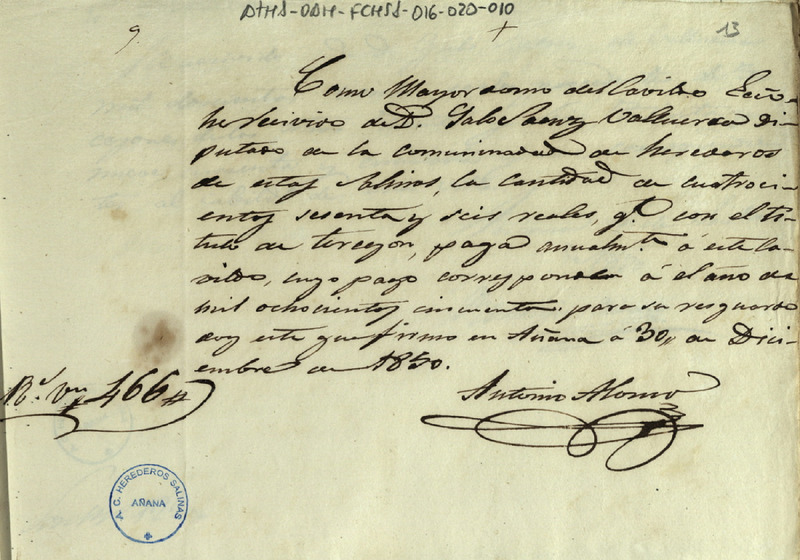 ATHA-DAH-FCHSS-016-020-010
9
13
Como Mayordomo del Cavildo Ecco
he Recivido de D. Pablo Saenz Valluerca Di-
putado de la comunidad de herederos
de estas Salinas, la cantidad de cuatroci-
entos sesenta y seis reales, q.e con el ti-
tulo de tercejon, paga anualm.te á este Ca-
vildo, cuyo pago corresponde á el año de
mil ochocientos cincuenta. para su resguardo
doy este que firmo en Añana á 30,, de Dici-
embre de 1850.
Antonio Alonso
R.s Vn 466 #
A.C. HEREDEROS SALINAS
AÑANA